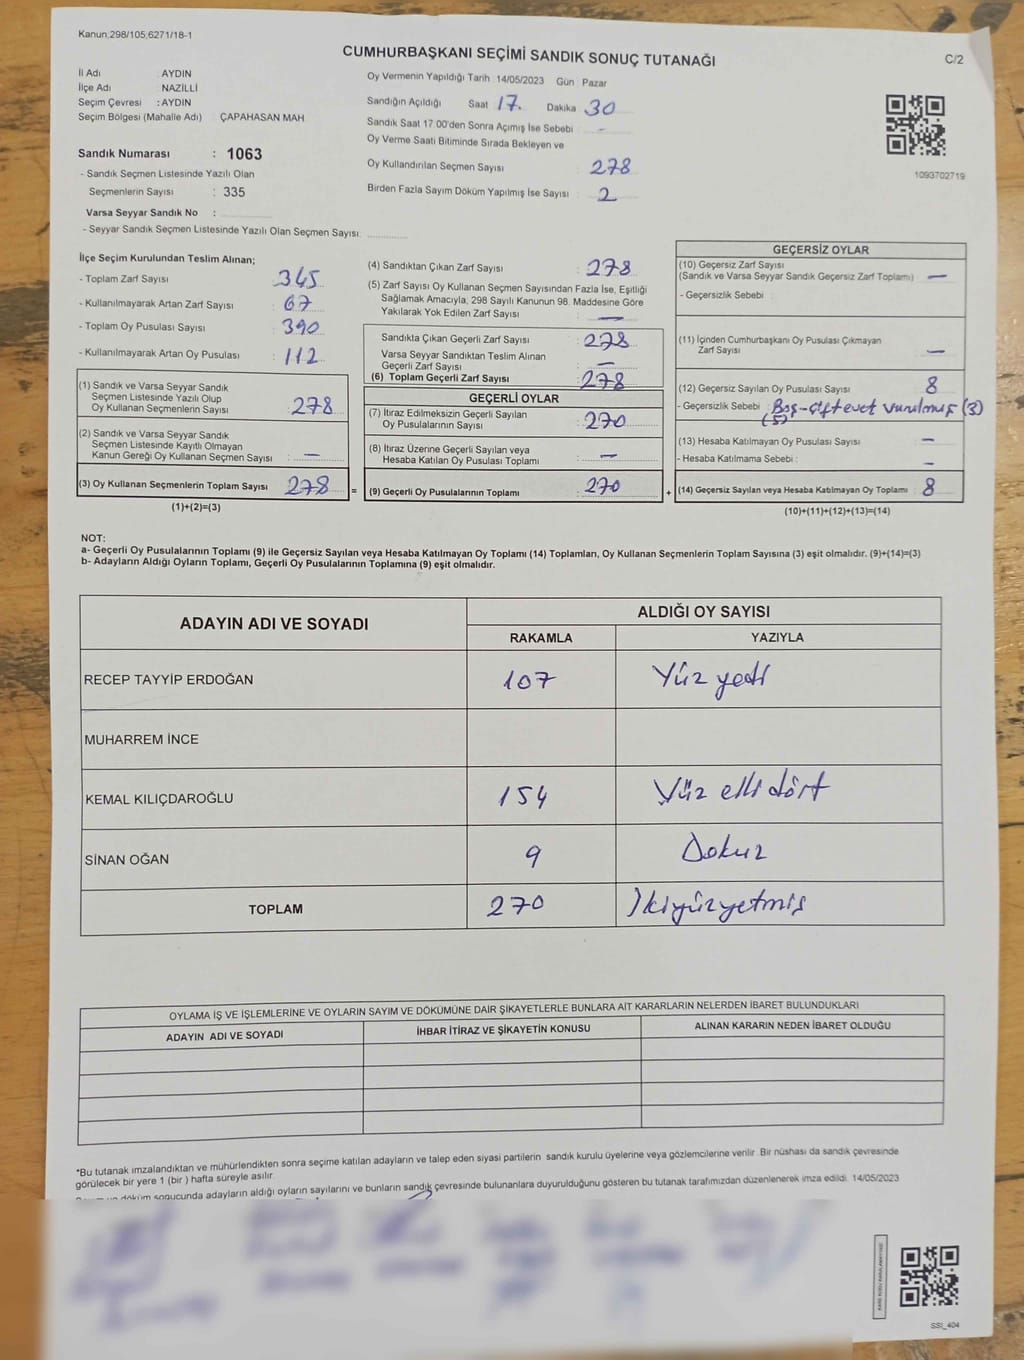 Kanun;298/105;6271/18-1
CUMHURBAŞKANI SEÇİMİ SANDIK SONUÇ TUTANAĞI
C/2
İl Adı : AYDIN
İlçe Adı : NAZİLLİ
Seçim Çevresi : AYDIN
Seçim Bölgesi (Mahalle Adı) : ÇAPAHASAN MAH.
Sandık Numarası : 1063
- Sandık Seçmen Listesinde Yazılı Olan
Seçmenlerin Sayısı : 335
Varsa Seyyar Sandık No :
- Seyyar Sandık Seçmen Listesinde Yazılı Olan Seçmen Sayısı:
Oy Vermenin Yapıldığı Tarih :14/05/2023 Gün : Pazar
Sandığın Açıldığı Saat 17. Dakika 30
Sandık Saat 17:00'den Sonra Açımış İse Sebebi : -
Oy Verme Saati Bitiminde Sırada Bekleyen ve
Oy Kullandırılan Seçmen Sayısı : 278
Birden Fazla Sayım Döküm Yapılmış İse Sayısı : 2
1093702719
İlçe Seçim Kurulundan Teslim Alınan;
- Toplam Zarf Sayısı : 345
- Kullanılmayarak Artan Zarf Sayısı : 67
- Toplam Oy Pusulası Sayısı : 390
- Kullanılmayarak Artan Oy Pusulası : 112
(1) Sandık ve Varsa Seyyar Sandık
Seçmen Listesinde Yazılı Olup
Oy Kullanan Seçmenlerin Sayısı : 278
(2) Sandık ve Varsa Seyyar Sandık
Seçmen Listesinde Kayıtlı Olmayan
Kanun Gereği Oy Kullanan Seçmen Sayısı : -
(3) Oy Kullanan Seçmenlerin Toplam Sayısı : 278 =
(1)+(2)=(3)
(4) Sandıktan Çıkan Zarf Sayısı : 278
(5) Zarf Sayısı Oy Kullanan Seçmen Sayısından Fazla İse, Eşitliği
Sağlamak Amacıyla, 298 Sayılı Kanunun 98. Maddesine Göre
Yakılarak Yok Edilen Zarf Sayısı : -
Sandıkta Çıkan Geçerli Zarf Sayısı : 278
Varsa Seyyar Sandıktan Teslim Alınan
Geçerli Zarf Sayısı : -
(6) Toplam Geçerli Zarf Sayısı : 278
GEÇERLİ OYLAR
(7) İtiraz Edilmeksizin Geçerli Sayılan
Oy Pusulalarının Sayısı : 270
(8) İtiraz Üzerine Geçerli Sayılan veya
Hesaba Katılan Oy Pusulası Toplamı : -
(9) Geçerli Oy Pusulalarının Toplamı : 270 +
GEÇERSİZ OYLAR
(10) Geçersiz Zarf Sayısı
(Sandık ve Varsa Seyyar Sandık Geçersiz Zarf Toplamı) : -
- Geçersizlik Sebebi :
(11) İçinden Cumhurbaşkanı Oy Pusulası Çıkmayan
Zarf Sayısı : -
(12) Geçersiz Sayılan Oy Pusulası Sayısı : 8
- Geçersizlik Sebebi : Boş-Çift evet vurulmuş (3)
(5)
(13) Hesaba Katılmayan Oy Pusulası Sayısı : -
- Hesaba Katılmama Sebebi : -
(14) Geçersiz Sayılan veya Hesaba Katılmayan Oy Toplamı : 8
(10)+(11)+(12)+(13)=(14)
NOT:
a- Geçerli Oy Pusulalarının Toplamı (9) ile Geçersiz Sayılan veya Hesaba Katılmayan Oy Toplamı (14) Toplamları, Oy Kullanan Seçmenlerin Toplam Sayısına (3) eşit olmalıdır. (9)+(14)=(3)
b- Adayların Aldığı Oyların Toplamı, Geçerli Oy Pusulalarının Toplamına (9) eşit olmalıdır.
ADAYIN ADI VE SOYADI
ALDIĞI OY SAYISI
RAKAMLA YAZIYLA
RECEP TAYYİP ERDOĞAN 107 Yüz yedi
MUHARREM İNCE
KEMAL KILIÇDAROĞLU 154 Yüz elli dört
SİNAN OĞAN 9 Dokuz
TOPLAM 270 İkiyüzyetmiş
OYLAMA İŞ VE İŞLEMLERİNE VE OYLARIN SAYIM VE DÖKÜMÜNE DAİR ŞİKAYETLERLE BUNLARA AİT KARARLARIN NELERDEN İBARET BULUNDUKLARI
ADAYIN ADI VE SOYADI İHBAR İTİRAZ VE ŞİKAYETİN KONUSU ALINAN KARARIN NEDEN İBARET OLDUĞU
*Bu tutanak imzalandıktan ve mühürlendikten sonra seçime katılan adayların ve talep eden siyasi partilerin sandık kurulu üyelerine veya gözlemcilerine verilir. Bir nüshası da sandık çevresinde
görülecek bir yere 1 (bir ) hafta süreyle asılır.
döküm sonucunda adayların aldığı oyların sayılarını ve bunların sandık çevresinde bulunanlara duyurulduğunu gösteren bu tutanak tarafımızdan düzenlenerek imza edildi. 14/05/2023
SSI_404